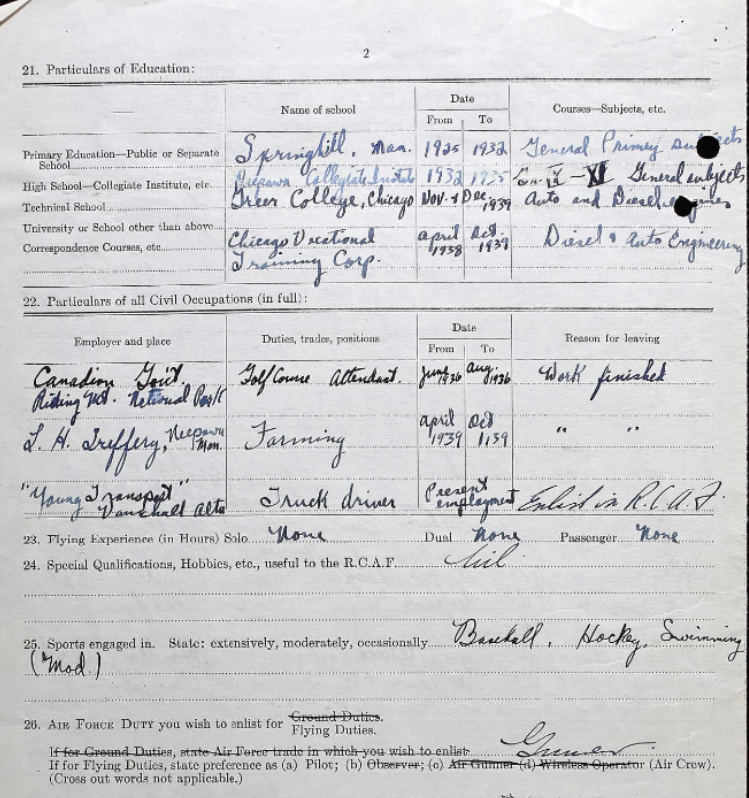 2
21. Particulars of Education:
Name of school
Date
From To
Courses—Subjects, etc.
Primary Education—Public or Separate School
Springhill, Man. 1925 1932 General Primary subjects
High School—Collegiate Institute, etc.
Neepawa Collegiate Institute 1932 1935 Gr. IX - XI General subjects
Technical School
Greer College, Chicago Nov. & Dec. 1939 Auto and Diesel engines
University or School other than above
Correspondence Courses, etc.
Chicago Vocational Training Corp. April 1938 Oct. 1939 Diesel & Auto Engineering
22. Particulars of all Civil Occupations (in full):
Employer and place
Duties, trades, positions
Date
From To
Reason for leaving
Canadian Gov't Golf Course Attendant. June 1936 Aug. 1936 Work finished
Riding Mt. National Park
L. H. Neepawa Man. Farming April 1939 Oct 1139 " "
"Young Transport" Truck driver Present employment Enlist in R.C.A.F.
Vauxhall Alta
23. Flying Experience (in Hours) Solo None Dual None Passenger None
24. Special Qualifications, Hobbies, etc., useful to the R.C.A.F. Nil
25. Sports engaged in. State: extensively, moderately, occasionally Baseball, Hockey, Swimming
(Mod.)
26. AIR FORCE DUTY you wish to enlist for Ground Duties.
Flying Duties.
If for Ground Duties, state Air Force trade in which you wish to enlist Gunner
If for Flying Duties, state preference as (a) Pilot; (b) Observer; (c) Air Gunner (d) Wireless Operator (Air Crew).
(Cross out words not applicable.)